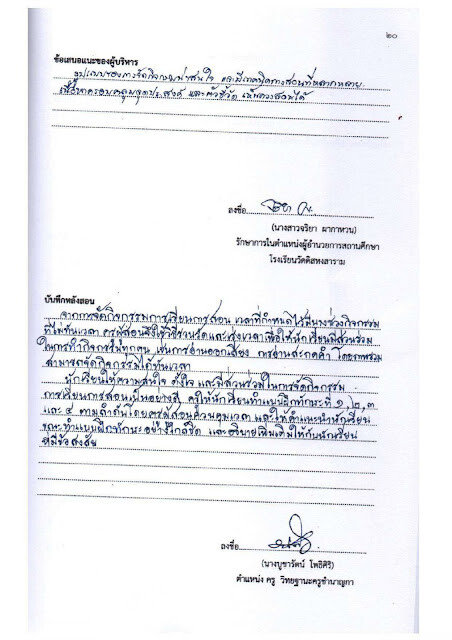 ๒๐
ข้อเสนอแนะของผู้บริหาร
รูปแบบของการจัดกิจกรรมน่าสนใจ และมีเทคนิคการสอนที่หลากหลาย
และตัวชี้วัด เห็นควรสอนได้
ลงชื่อ
(นางสาวจริยา ผาภาหวน)
รักษาการในตำแหน่งผู้อำนวยการสถานศึกษา
โรงเรียนวัดดิสหงสาราม
บันทึกหลังสอน
จากการจัดกิจกรรมการเรียนการสอน เวลาที่กำหนดไว้มีบางช่วงกิจกรรม
ที่ไม่ทันเวลา ครูผู้สอนจึงใช้วิธีรวบรัดและเร่งเวลาเพื่อให้นักเรียนมีส่วนร่วม
ในการทำกิจกรรมทุกคน เช่นการอ่านออกเสียง การอ่านสะกดคำ โดยภาพรวม
สามารถจัดกิจกรรมได้ทันเวลา
นักเรียนให้ความสนใจ ตั้งใจ และมีส่วนร่วมในการจัดกิจกรรม
การเรียนการสอนเป็นอย่างดี ครูให้นักเรียนทำแบบฝึกทักษะที่ ๑,๒,๓
และ ๔ ตามลำดับโดยครูผู้สอนควบคุมเวลา และให้คำแนะนำนักเรียน
ขณะทำแบบฝึกทักษะอย่างใกล้ชิด และอธิบายเพิ่มเติมให้กับนักเรียน
ที่มีข้อสงสัย
ลงชื่อ
(นางบูชารัตน์ โพธิศิริ)
ตำแหน่ง ครู วิทยฐานะครูชำนาญการ